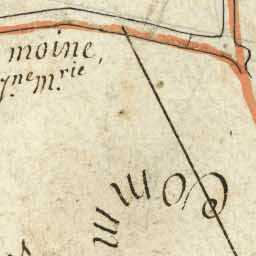 moine,
y.ne m.rie
Comm